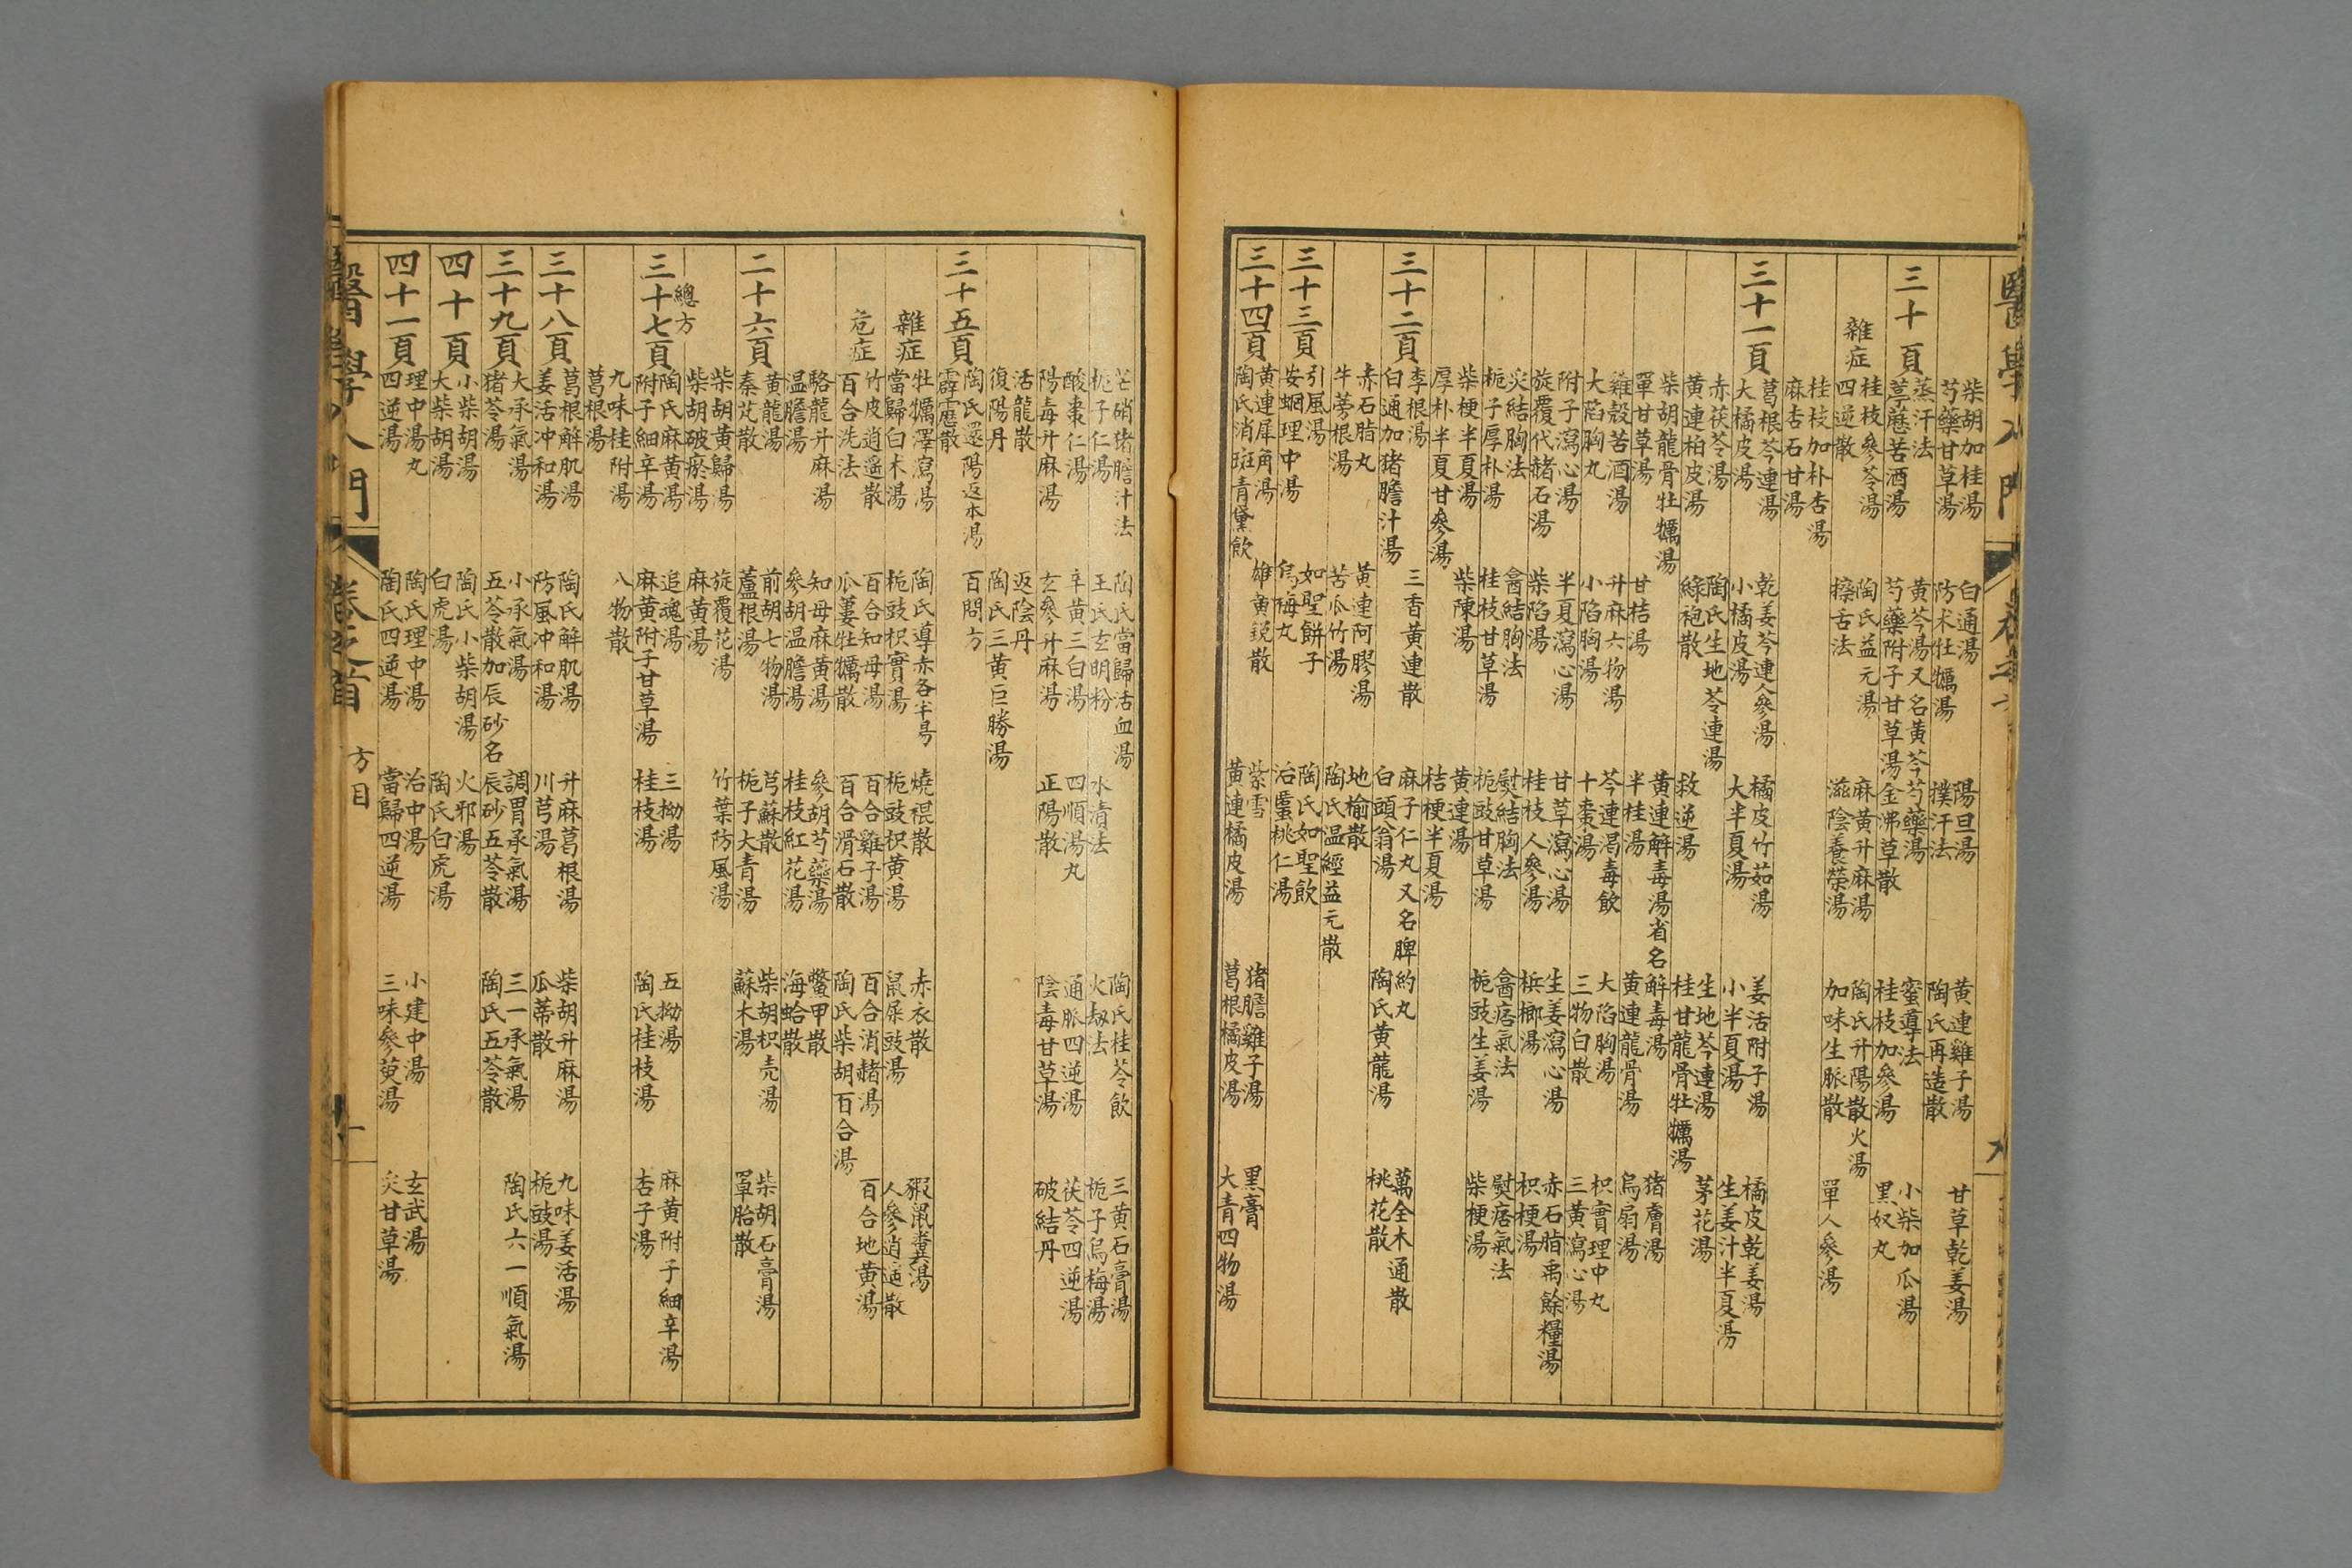 醫學入門
柴胡加桂湯 白通湯 陽旦湯 黃連雞子湯 甘草乾姜湯
芍藥甘草湯 防术牡犡湯 撲汗法 陶氏再造散
三十頁
蒸汗法 黃芩湯又名黃芩芍藥湯 蜜導法 小柴加瓜湯
葶藶苦酒湯 芍藥附子甘草湯 金沸草散 桂枝加參湯 黑奴丸
雜症
桂枝參苓湯 陶氏益元湯 麻黃升麻湯 陶氏升陽散火湯
四逆散 擦舌法 滋陰養榮湯 加味生脈散 單人參湯
桂枝加朴杏湯
麻杏石甘湯
三十一頁
葛根芩連湯 乾姜芩連人參湯 橘皮竹茹湯 姜活附子湯 橘皮乾姜湯
大橘皮湯 小橘皮湯 大半夏湯 小半夏湯 生姜汁半夏湯
赤茯苓湯 陶氏生地芩連湯 生地芩連湯 茅花湯
黃連柏皮湯 綠袍散 救逆湯 桂甘龍骨牡犡湯
柴胡龍骨牡犡湯 黃連解毒湯省名解毒湯 猪膚湯
單甘草湯 甘桔湯 半桂湯 黃連龍骨湯 烏扇湯
雞殼苦酒湯 升麻六物湯 芩連濁毒飲 大陷胸湯 枳實理中丸
大陷胸丸 小陷胸湯 十棗湯 三物白散 三黃瀉心湯
附子瀉心湯 半夏瀉心湯 甘草瀉心湯 生姜瀉心湯 赤石脂禹餘糧湯
旋覆代赭石湯 柴陷湯 桂枝人參湯 梹榔湯 枳梗湯
灸結胸法 龕結胸法 熨結胸法 龕痞氣法 熨痞氣法
栀子厚朴湯 桂枝甘草湯 栀豉甘草湯 栀豉生姜湯 柴梗湯
柴梗半夏湯 柴陳湯 黃連湯
厚朴半夏甘參湯 桔梗半夏湯
三十二頁
李根湯 三香黃連散 麻子仁丸又名脾約丸 萬全木通散
白通加猪膽汁湯 白頭翁湯 陶氏黃龍湯 桃花散
赤石脂丸 黃連阿膠湯 地榆散
牛蒡根湯 苦瓜竹湯 陶氏温經益元散
三十三頁
引風湯 如聖餅子 陶氏如聖飲
安蛔理中湯 烏梅丸 治䘌桃仁湯
三十四頁
黃連犀角湯 雄黃銳散 紫雪 猪膽雞子湯 黑膏
陶氏消斑青黛飲 黃連橘皮湯 葛根橘皮湯 大青四物湯
芒硝猪膽汁法 陶氏當歸活血湯 陶氏桂苓飲 三黃石膏湯
栀子仁湯 王氏玄明粉 水清法 火刼法 栀子烏梅湯
酸棗仁湯 辛黃三白湯 四順湯丸 通脈四逆湯 茯苓四逆湯
陽毒升麻湯 玄參升麻湯 正陽散 陰毒甘草湯 破結丹
活龍散 返陰丹
復陽丹 陶氏三黃巨勝湯
三十五頁
陶氏還陽返本湯 百問方
霹靂散
雜症
牡犡澤瀉湯 陶氏導赤各半湯 燒裩散 赤衣散 豭鼠糞湯
當歸白术湯 栀豉枳實湯 栀豉枳黃湯 鼠屎豉湯 人參逍遥散
危症
竹皮逍遥散 百合知母湯 百合雞子湯 百合消赭湯 百合地黃湯
百合洗法 瓜蔞牡犡散 百合滑石散 陶氏柴胡百合湯
駱龍升麻湯 知母麻黃湯 參胡芍藥湯 鱉甲散
温膽湯 參胡温膽湯 桂枝紅花湯 海蛤散
二十六頁
黃龍湯 前胡七物湯 芎蘇散 柴胡枳壳湯 柴胡石膏湯
秦艽散 蘆根湯 栀子大青湯 蘇木湯 罩胎散
柴胡黃歸湯 旋覆花湯 竹葉防風湯
柴胡破瘀湯 麻黃湯
總方
三十七頁
陶氏麻黃湯 追魂湯 三拗湯 五拗湯 麻黃附子細辛湯
附子細辛湯 麻黃附子甘草湯 桂枝湯 陶氏桂枝湯 杏子湯
九味桂附湯 八物散
葛根湯
三十八頁
葛根解肌湯 陶氏解肌湯 升麻葛根湯 柴胡升麻湯 九味姜活湯
姜活冲和湯 防風冲和湯 川芎湯 瓜蒂散 栀豉湯
三十九頁
大承氣湯 小承氣湯 調胃承氣湯 三一承氣湯 陶氏六一順氣湯
猪苓湯 五苓散加辰砂名辰砂五苓散 陶氏五苓散
四十頁
小柴胡湯 陶氏小柴胡湯 火邪湯
大柴胡湯 白虎湯 陶氏白虎湯
四十一頁
理中湯丸 陶氏理中湯 治中湯 小建中湯 玄武湯
四逆湯 陶氏四逆湯 當歸四逆湯 三味參萸湯 炙甘草湯
醫學入門 卷之首 方目